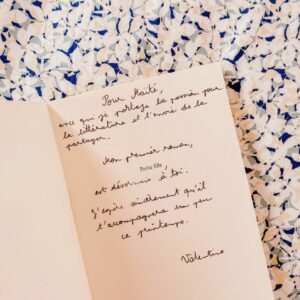 Pour Maité,
avec qui je partage la passion pour
la littérature et l'envie de la
partager.
Mon premier roman,
Petite fille
est désormais à toi.
J'espère sincèrement qu'il
t'accompagnera un peu
ce printemps.
Valentine